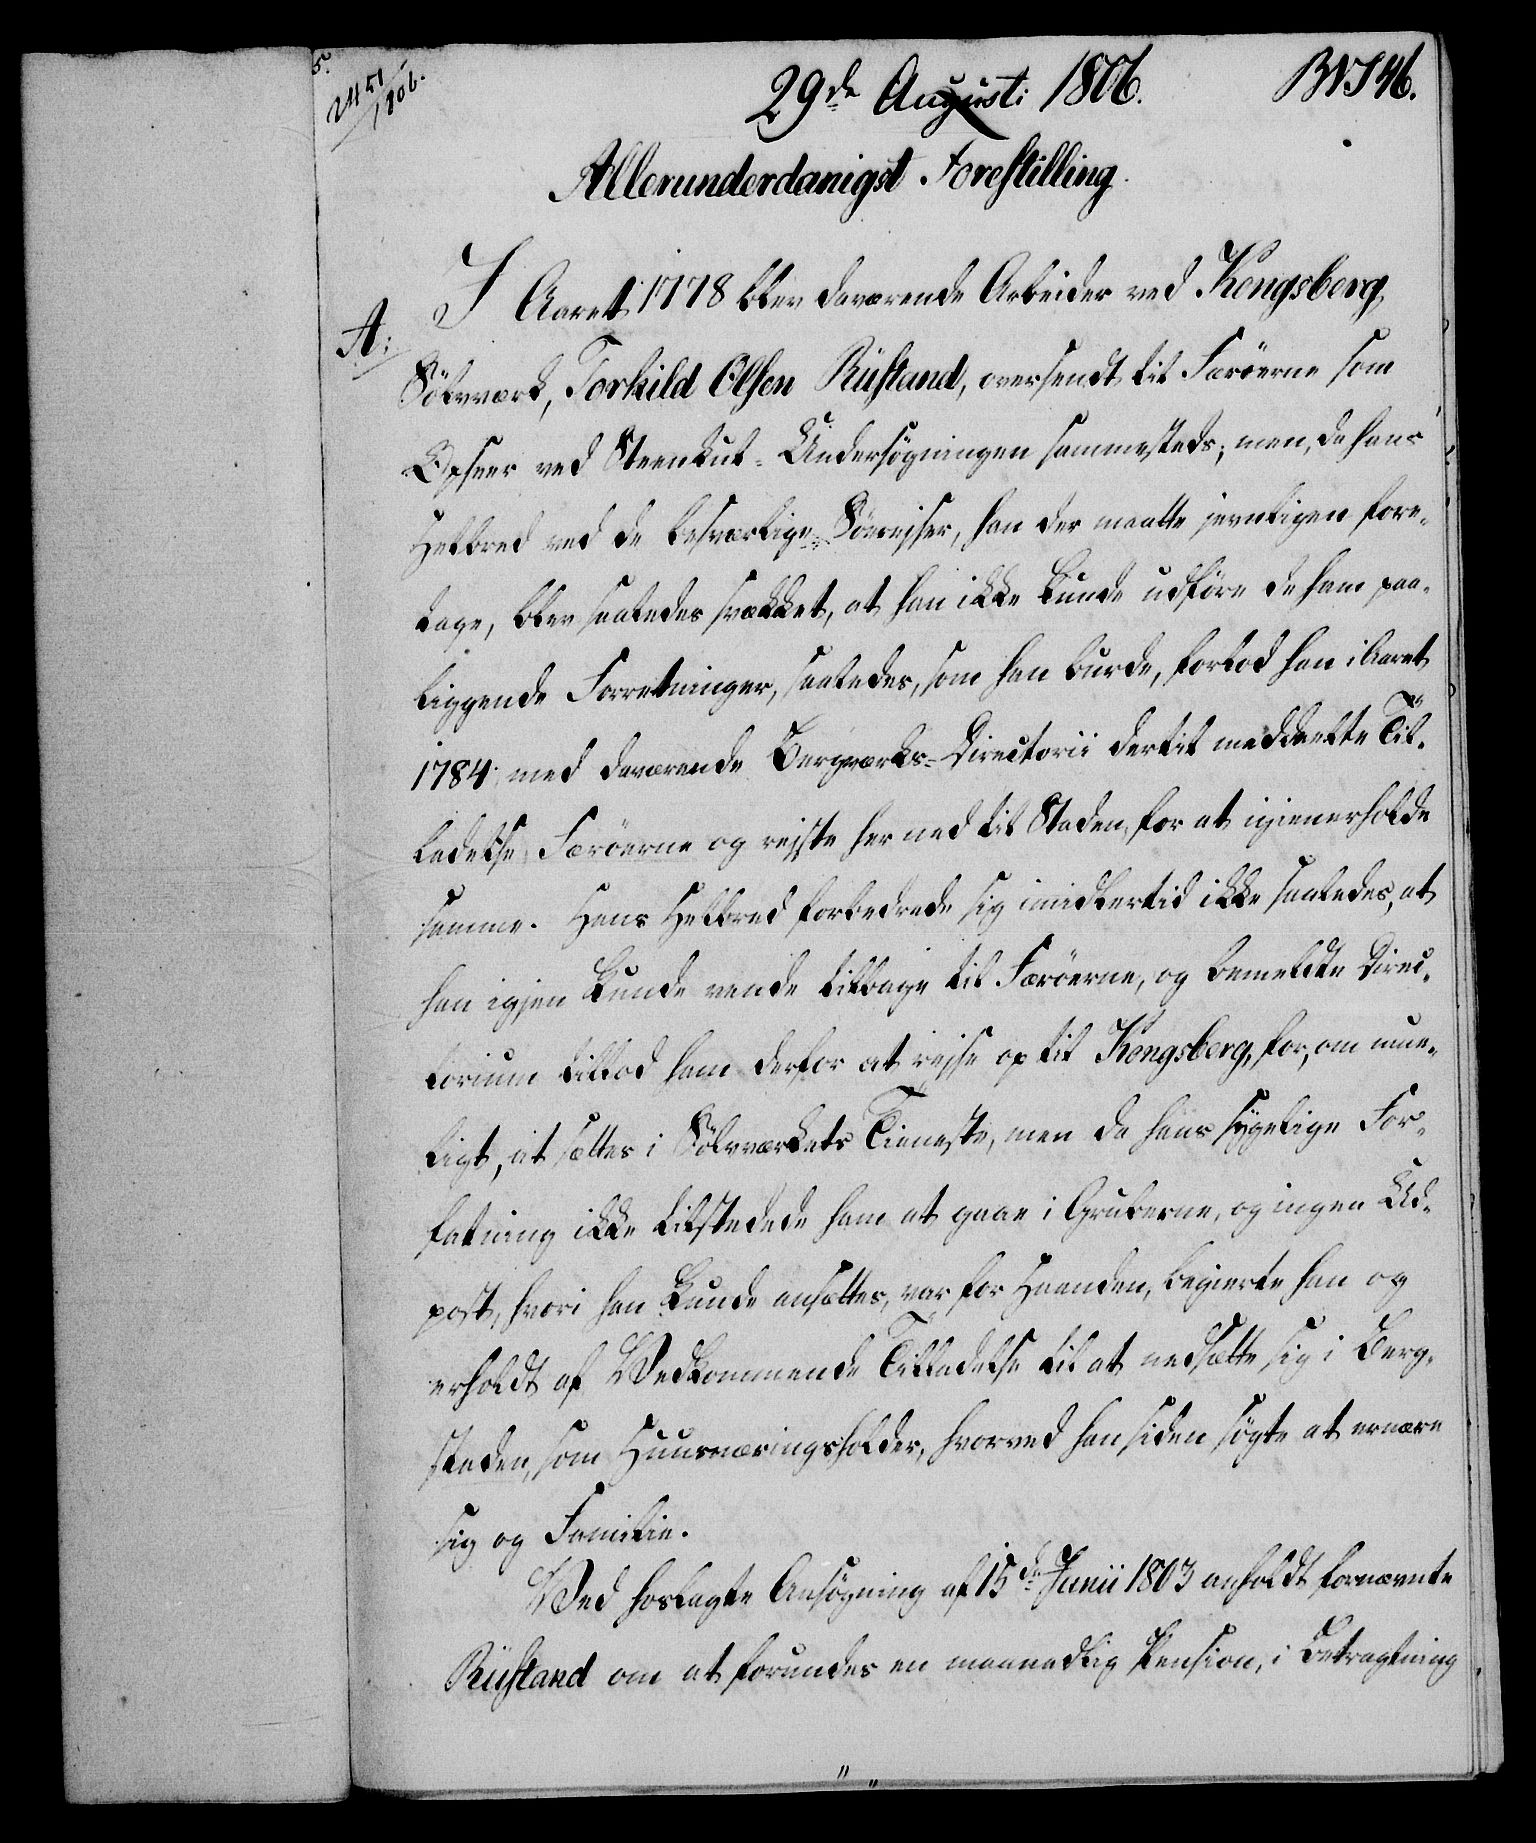 5.
2451/1806.
29de Augusti 1806.
BVS 46.
Allerunderdanigst Forestilling.
A:
I Aaret 1778 blev daværende Arbeider ved Kongsberg
Sölvværk, Torkild Olsen Rustand, oversendt til Færöerne som
Opseer ved Steenkul-Undersögningen sammesteds; men, da hans
Helbred ved de besværlige Söereiser, han der maatte jevnligen fore-
tage, blev saaledes svækket, at han ikke kunde udföre de ham paa-
liggende Forretninger, saaledes, som han burde, forlod han i Aaret
1784 med daværende Bergværks-Directorii dertil meddeelte Til-
ladelse Færöerne og rejste her ned til Staden, for at igienerholde
samme. Hans Helbred forbedrede sig imidlertid ikke saaledes, at
han igjen kunde vende tilbage til Færöerne, og bemeldte Direc-
torium tillod ham derfor at rejse op til Kongsberg, for, om mue-
ligt, at sættes i Sölvværkets Tieneste, men da hans sygelige For-
fatning ikke tilstedede ham at gaae i Gruberne, og ingen Ud-
post, hvori han kunde ansættes, var for Haanden, begierte han og
erholdt af Vedkommende Tilladelse til at nedsætte sig i Berg-
staden, som Huusnæringsholder, hvorved han siden sögte at ernære
sig og Familie.
Ved hoslagte Ansögning af 15de Junii 1803 anholdt fornævnte
Rustand om at forundes en maanedlig Pension, i Betragtning